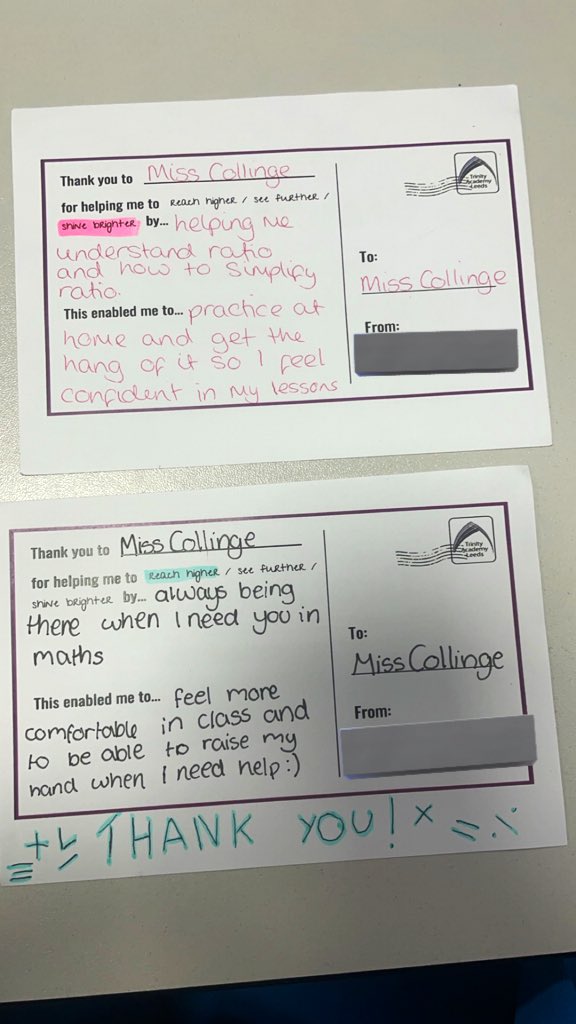 Thank you to Miss Collinge
for helping me to REACH HIGHER / SEE FURTHER /
SHINE BRIGHTER by... helping me
understand ratio
and how to simplify
ratio.
This enabled me to... practice at
home and get the
hang of it so I feel
confident in my lessons
Trinity
Academy
Leeds
To:
Miss Collinge
From:
Thank you to Miss Collinge
for helping me to REACH HIGHER / SEE FURTHER /
SHINE BRIGHTER by... always being
there when I need you in
maths
This enabled me to... feel more
comfortable in class and
to be able to raise my
hand when I need help:)
Trinity
Academy
Leeds
To:
Miss Collinge
From:
THANK YOU!